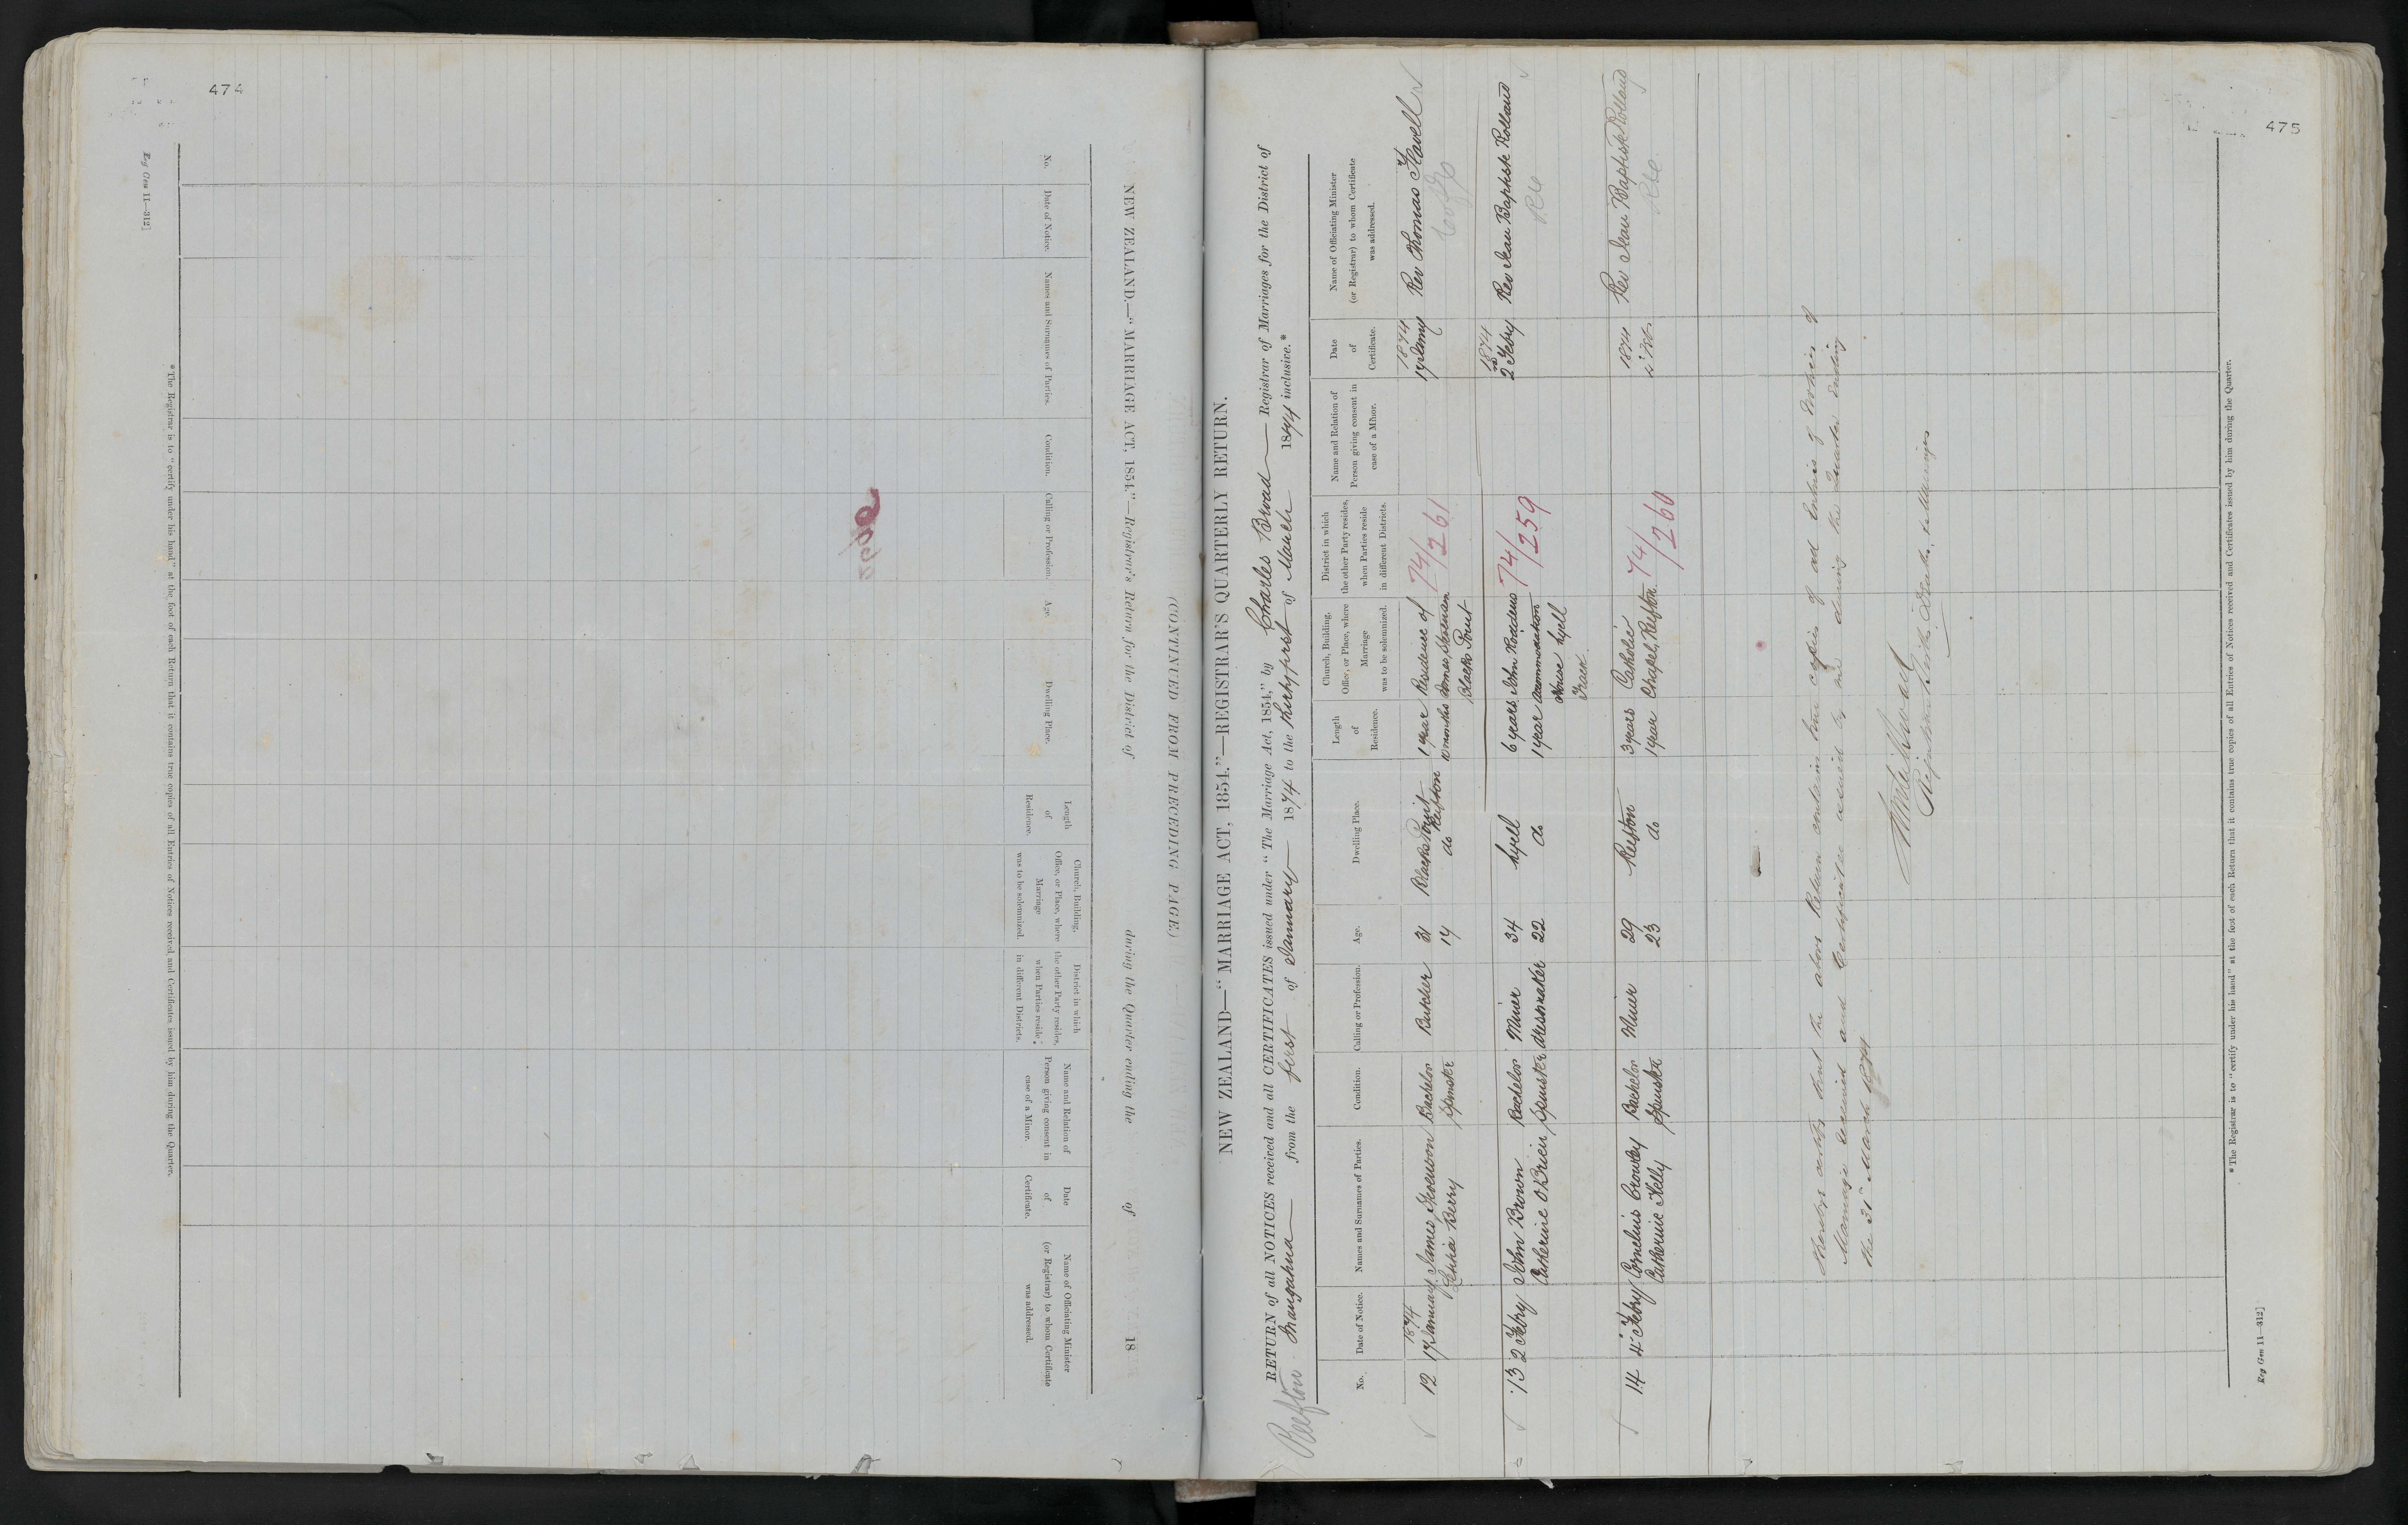 474
NEW ZEALAND.—"MARRIAGE ACT, 1854."—Registrar's Return for the District of during the Quarter ending the of 18
(CONTINUED FROM PRECEDING PAGE.)
No.
Date of Notice.
Names and Surnames of Parties.
Condition.
Calling or Profession.
Age.
Dwelling Place.
Length of Residence.
Church, Building, Office, or Place, where Marriage was to be solemnized.
District in which the other Party resides, when Parties reside in different Districts.
Name and Relation of Person giving consent in case of a Minor.
Date of Certificate.
Name of Officiating Minister (or Registrar) to whom Certificate was addressed.
*The Registrar is to "certify under his hand" at the foot of each Return that it contains true copies of all Entries of Notices received and Certificates issued by him during the Quarter.
Reg Gen 11—312]
475
NEW ZEALAND—"MARRIAGE ACT, 1854."—REGISTRAR'S QUARTERLY RETURN.
RETURN of all NOTICES received and all CERTIFICATES issued under "The Marriage Act, 1854," by Charles Broad Registrar of Marriages for the District of
Reefton Inangahua from the first of January 1874 to the thirtyfirst of March 1874 inclusive.*
No.
Date of Notice.
Names and Surnames of Parties.
Condition.
Calling or Profession.
Age.
Dwelling Place.
Length of Residence.
Church, Building, Office, or Place, where Marriage was to be solemnized.
District in which the other Party resides, when Parties reside in different Districts.
Name and Relation of Person giving consent in case of a Minor.
Date of Certificate.
Name of Officiating Minister (or Registrar) to whom Certificate was addressed.
1874 1874
12 17 January James Stevenson Bachelor Butcher 31 Blacks Point 1 year Residence of 74/261 17 Jany Rev Thomas Flavell
Berry Spinster 19 do Reefton 10 months James Stevenson
Blacks Point
1874
13 2 Febry John Brown Bachelor Miner 34 Lyell 6 years John Roddens 74/259 2nd Febry Rev Jean Baptiste Rolland
Catherine O'Brien Spinster Dressmaker 22 do 1 year accommodation
House Lyell
Track
1874
14 4th Febry Cornelius Crowley Bachelor Miner 29 Reefton 3 years Catholic 74/260 Rev Jean Baptiste Rolland
Catherine Kelly Spinster 23 do 1 year Chapel, Reefton
I hereby certify that the above Return contains true copies of all Entries of Notices of
Marriage received and Certificates issued by me during the Quarter ending
the 31st March 1874
Registrar Births Deaths & Marriages
*The Registrar is to "certify under his hand" at the foot of each Return that it contains true copies of all Entries of Notices received and Certificates issued by him during the Quarter.
Reg Gen 11—312]